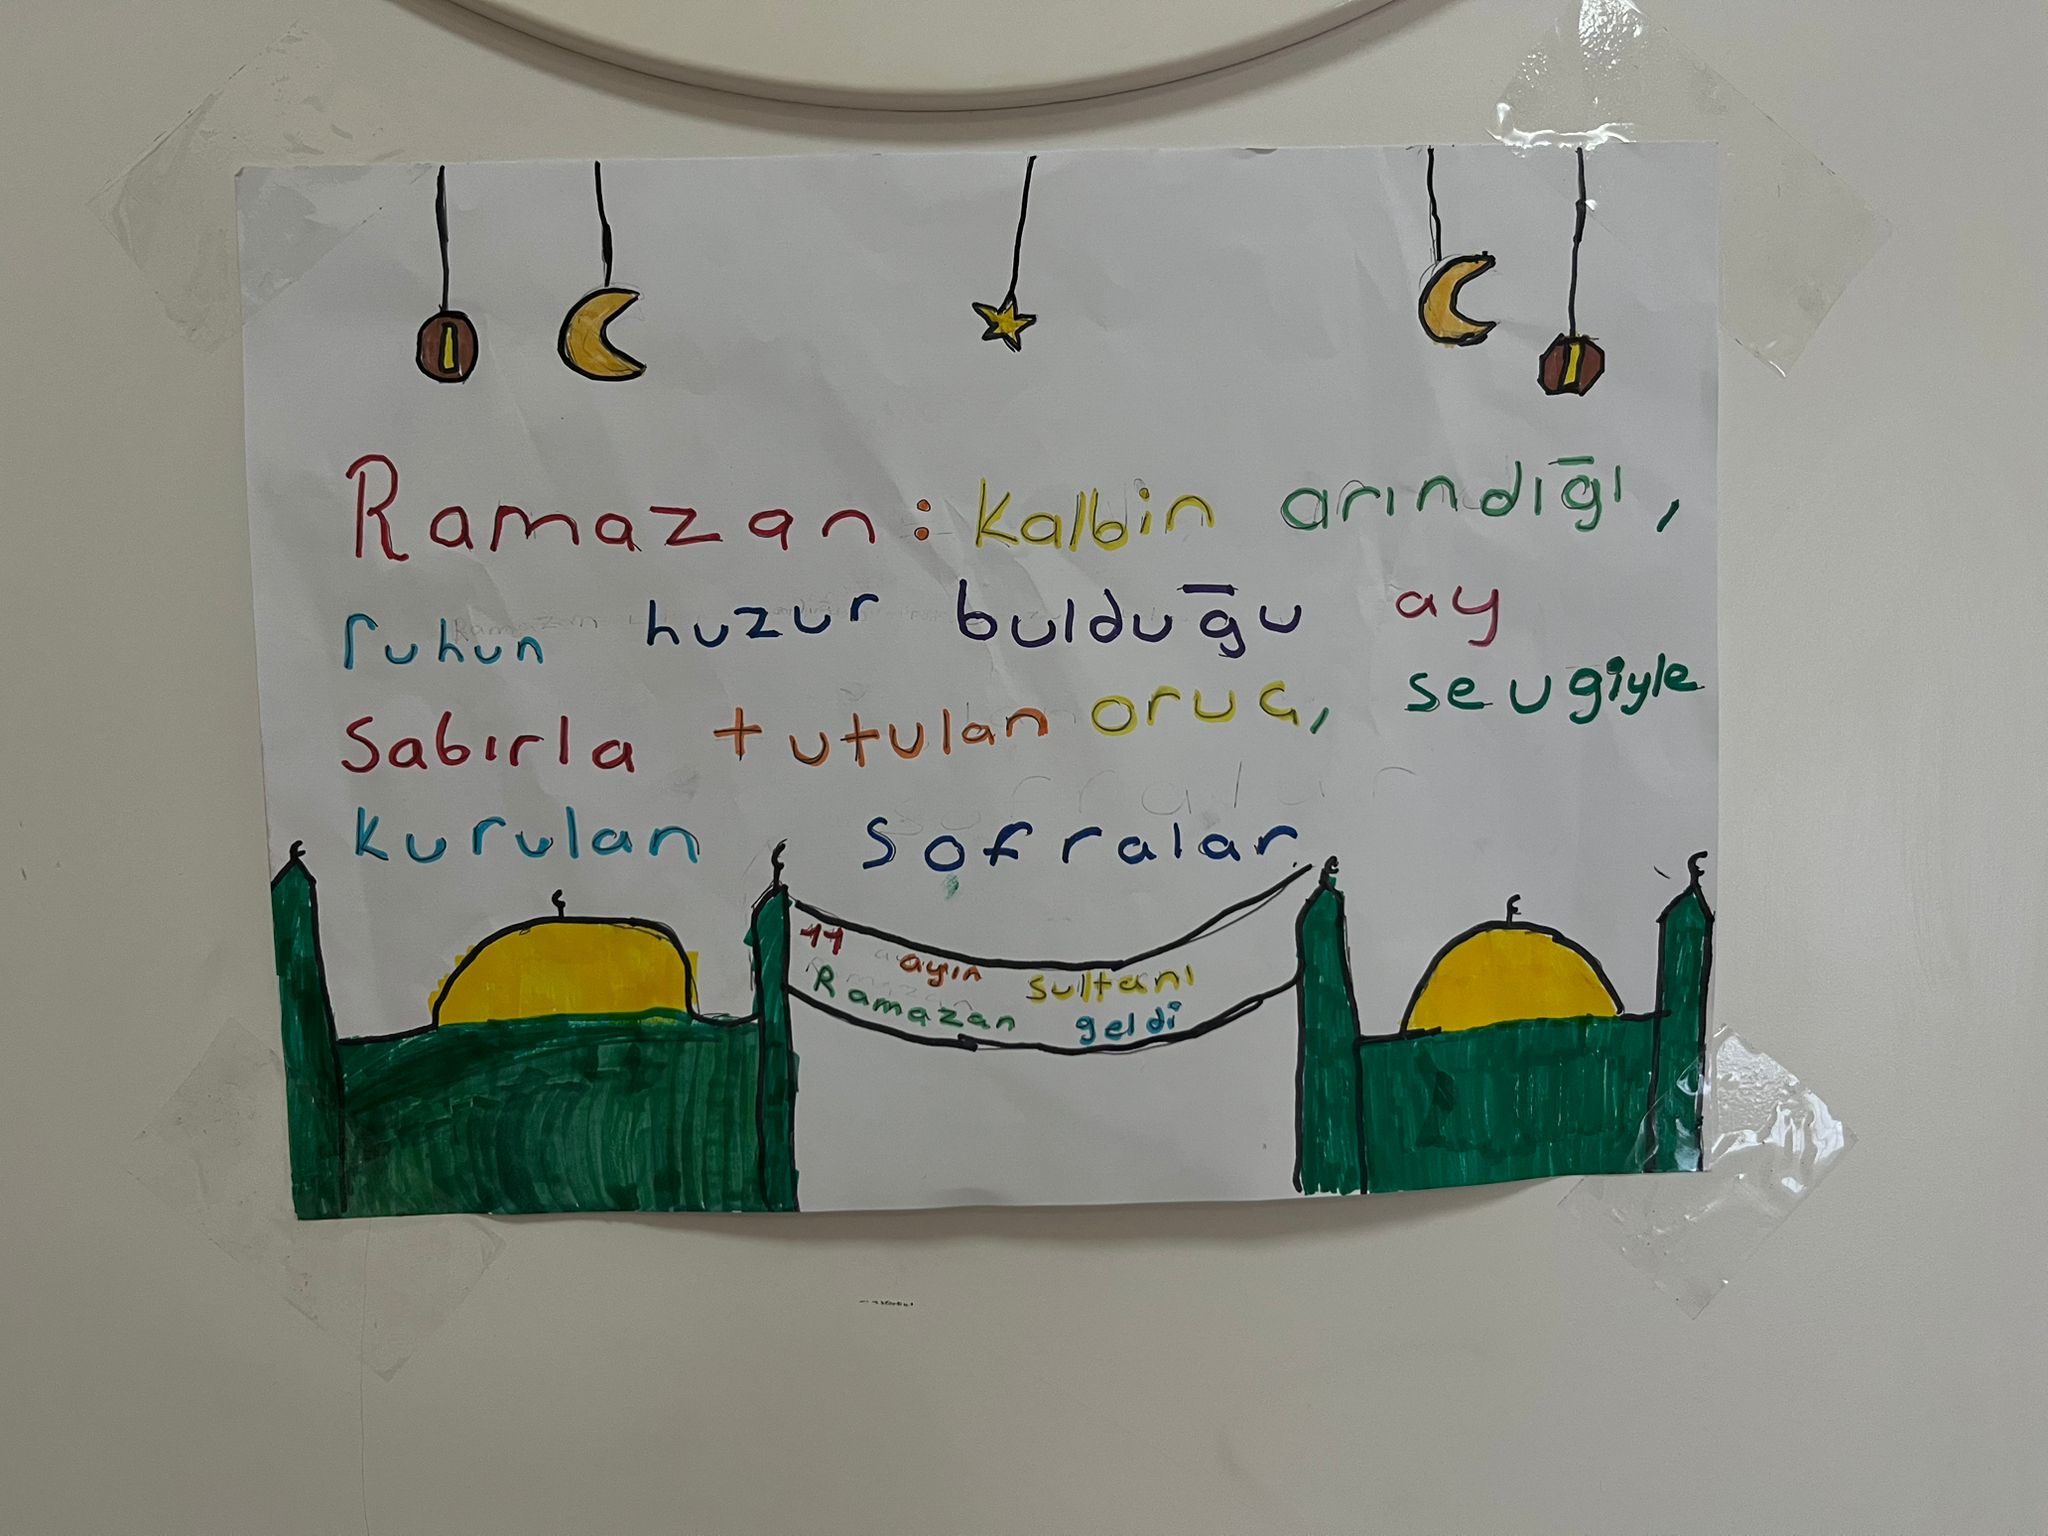 Ramazan: Kalbin arındığı,
ruhun huzur bulduğu ay
Sabırla tutulan oruç, sevgiyle
kurulan sofralar
11 ayın sultanı
Ramazan geldi